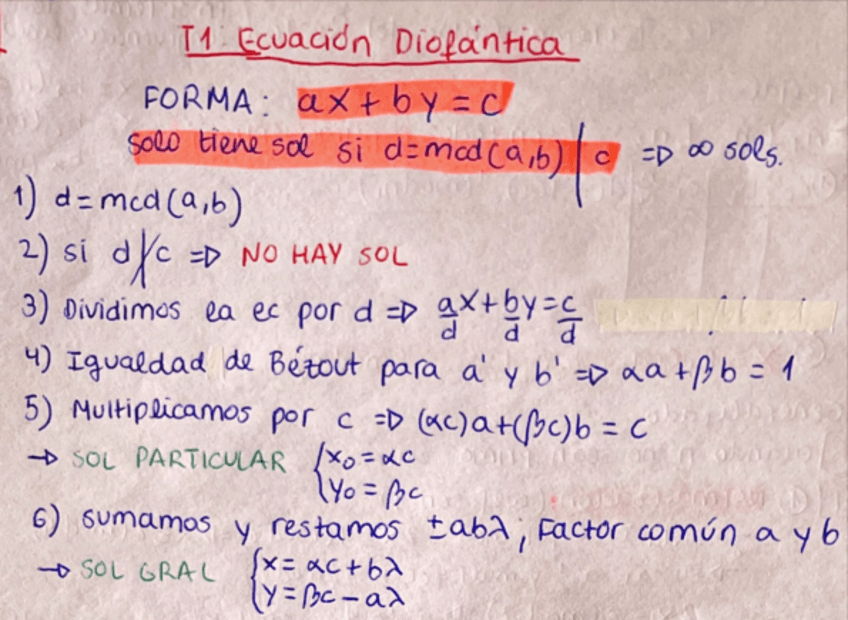 T1: Ecuación Diofántica
FORMA: ax + by = c
solo tiene sol si d=mcd(a,b) | c => ∞ sols.
1) d=mcd(a,b)
2) si d∤c => NO HAY SOL
3) Dividimos la ec por d => a/d x + b/d y = c/d
4) Igualdad de Bézout para a' y b' => αa + βb = 1
5) Multiplicamos por c => (αc)a+(βc)b = c
→ SOL PARTICULAR { x₀ = αc
y₀ = βc
6) sumamos y restamos ±abλ; Factor común a y b
→ SOL GRAL { x = αc + bλ
y = βc - aλ